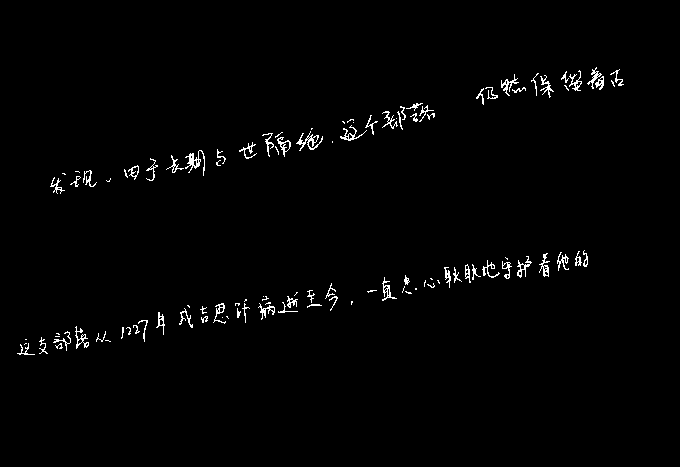 发现，由于长期与世隔绝，这个部落 仍然保留着古
这支部落从1227年成吉思汗病逝至今，一直忠心耿耿地守护着他的